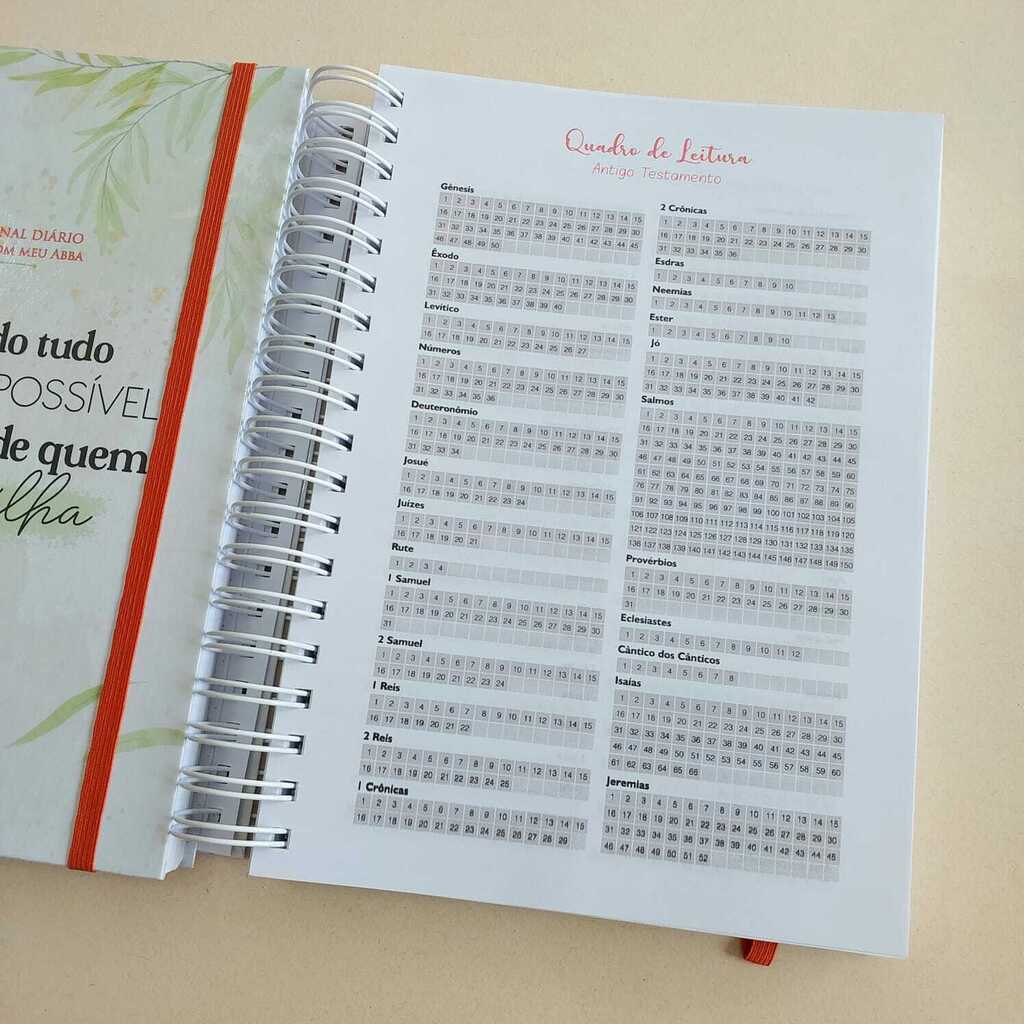 NAL DIÁRIO
OM MEU ABBA
do tudo
POSSÍVEL
de quem
ilha
Quadro de Leitura
Antigo Testamento
Gênesis
1 2 3 4 5 6 7 8 9 10 11 12 13 14 15
16 17 18 19 20 21 22 23 24 25 26 27 28 29 30
31 32 33 34 35 36 37 38 39 40 41 42 43 44 45
46 47 48 49 50
Êxodo
1 2 3 4 5 6 7 8 9 10 11 12 13 14 15
16 17 18 19 20 21 22 23 24 25 26 27 28 29 30
31 32 33 34 35 36 37 38 39 40
Levítico
1 2 3 4 5 6 7 8 9 10 11 12 13 14 15
16 17 18 19 20 21 22 23 24 25 26 27
Números
1 2 3 4 5 6 7 8 9 10 11 12 13 14 15
16 17 18 19 20 21 22 23 24 25 26 27 28 29 30
31 32 33 34 35 36
Deuteronômio
1 2 3 4 5 6 7 8 9 10 11 12 13 14 15
16 17 18 19 20 21 22 23 24 25 26 27 28 29 30
31 32 33 34
Josué
1 2 3 4 5 6 7 8 9 10 11 12 13 14 15
16 17 18 19 20 21 22 23 24
Juízes
1 2 3 4 5 6 7 8 9 10 11 12 13 14 15
16 17 18 19 20 21
Rute
1 2 3 4
1 Samuel
1 2 3 4 5 6 7 8 9 10 11 12 13 14 15
16 17 18 19 20 21 22 23 24 25 26 27 28 29 30
31
2 Samuel
1 2 3 4 5 6 7 8 9 10 11 12 13 14 15
16 17 18 19 20 21 22 23 24
1 Reis
1 2 3 4 5 6 7 8 9 10 11 12 13 14 15
16 17 18 19 20 21 22
2 Reis
1 2 3 4 5 6 7 8 9 10 11 12 13 14 15
16 17 18 19 20 21 22 23 24 25
1 Crônicas
1 2 3 4 5 6 7 8 9 10 11 12 13 14 15
16 17 18 19 20 21 22 23 24 25 26 27 28 29
2 Crônicas
1 2 3 4 5 6 7 8 9 10 11 12 13 14 15
16 17 18 19 20 21 22 23 24 25 26 27 28 29 30
31 32 33 34 35 36
Esdras
1 2 3 4 5 6 7 8 9 10
Neemias
1 2 3 4 5 6 7 8 9 10 11 12 13
Ester
1 2 3 4 5 6 7 8 9 10
Jó
1 2 3 4 5 6 7 8 9 10 11 12 13 14 15
16 17 18 19 20 21 22 23 24 25 26 27 28 29 30
31 32 33 34 35 36 37 38 39 40 41 42
Salmos
1 2 3 4 5 6 7 8 9 10 11 12 13 14 15
16 17 18 19 20 21 22 23 24 25 26 27 28 29 30
31 32 33 34 35 36 37 38 39 40 41 42 43 44 45
46 47 48 49 50 51 52 53 54 55 56 57 58 59 60
61 62 63 64 65 66 67 68 69 70 71 72 73 74 75
76 77 78 79 80 81 82 83 84 85 86 87 88 89 90
91 92 93 94 95 96 97 98 99 100 101 102 103 104 105
106 107 108 109 110 111 112 113 114 115 116 117 118 119 120
121 122 123 124 125 126 127 128 129 130 131 132 133 134 135
136 137 138 139 140 141 142 143 144 145 146 147 148 149 150
Provérbios
1 2 3 4 5 6 7 8 9 10 11 12 13 14 15
16 17 18 19 20 21 22 23 24 25 26 27 28 29 30
31
Eclesiastes
1 2 3 4 5 6 7 8 9 10 11 12
Cântico dos Cânticos
1 2 3 4 5 6 7 8
Isaías
1 2 3 4 5 6 7 8 9 10 11 12 13 14 15
16 17 18 19 20 21 22 23 24 25 26 27 28 29 30
31 32 33 34 35 36 37 38 39 40 41 42 43 44 45
46 47 48 49 50 51 52 53 54 55 56 57 58 59 60
61 62 63 64 65 66
Jeremias
1 2 3 4 5 6 7 8 9 10 11 12 13 14 15
16 17 18 19 20 21 22 23 24 25 26 27 28 29 30
31 32 33 34 35 36 37 38 39 40 41 42 43 44 45
46 47 48 49 50 51 52